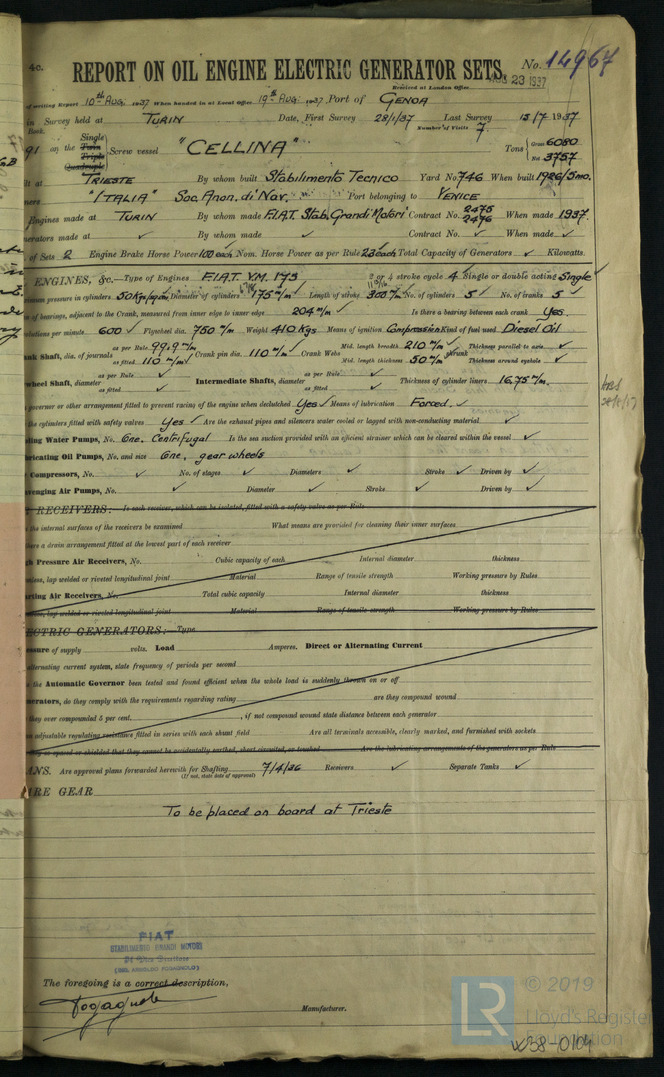 4c.
REPORT ON OIL ENGINE ELECTRIC GENERATOR SETS.
No. 14967
AUG 23 1937
Received at London Office
of writing Report 10th AUG. 1937 When handed in at Local Office 19th AUG. 1937 Port of GENOA
in Survey held at TURIN Date, First Survey 28/1/37 Last Survey 15/7 1937
Book. Number of Visits 7.
91 on the Single Twin Triple Quadruple Screw vessel "CELLINA" Tons Gross 6080 Net 3757
lt at TRIESTE By whom built Stabilimento Tecnico Yard No. 746 When built 1926/5mo.
ners "ITALIA" Soc. Anon. di Nav. Port belonging to VENICE
Engines made at TURIN By whom made F.I.A.T. Stab. Grandi Motori Contract No. 2475 2476 When made 1937.
nerators made at ✓ By whom made ✓ Contract No. ✓ When made ✓
of Sets 2 Engine Brake Horse Power 100 each Nom. Horse Power as per Rule 23 each Total Capacity of Generators ✓ Kilowatts.
ENGINES, &c.—Type of Engines F.I.A.T. V.M. 175 2 or 4 stroke cycle 4 Single or double acting Single
mum pressure in cylinders 50 Kgs/sq cm Diameter of cylinders 175 m/m Length of stroke 300 m/m No. of cylinders 5 No. of cranks 5
of bearings, adjacent to the Crank, measured from inner edge to inner edge 204 m/m Is there a bearing between each crank Yes.
olutions per minute 600 Flywheel dia. 750 m/m Weight 410 kgs Means of ignition Compression Kind of fuel used Diesel Oil
ank Shaft, dia. of journals as per Rule 99.9 m/m as fitted 110 m/m Crank pin dia. 110 m/m Crank Webs Mid. length breadth 210 m/m Mid. length thickness 50 m/m shrunk Thickness parallel to axis ✓ Thickness around eyehole ✓
wheel Shaft, diameter as per Rule ✓ as fitted ✓ Intermediate Shafts, diameter as per Rule ✓ as fitted ✓ Thickness of cylinder liners 16.75 m/m.
governor or other arrangement fitted to prevent racing of the engine when declutched Yes Means of lubrication Forced.
the cylinders fitted with safety valves Yes Are the exhaust pipes and silencers water cooled or lagged with non-conducting material ✓
ling Water Pumps, No. One. Centrifugal Is the sea suction provided with an efficient strainer which can be cleared within the vessel ✓
ricating Oil Pumps, No. and size One, gear wheels
Compressors, No. ✓ No. of stages ✓ Diameters ✓ Stroke ✓ Driven by ✓
venging Air Pumps, No. ✓ Diameter ✓ Stroke ✓ Driven by ✓
RECEIVERS:— Is each receiver, which can be isolated, fitted with a safety valve as per Rule
the internal surfaces of the receivers be examined What means are provided for cleaning their inner surfaces
there a drain arrangement fitted at the lowest part of each receiver
gh Pressure Air Receivers, No. Cubic capacity of each Internal diameter thickness
mless, lap welded or riveted longitudinal joint Material Range of tensile strength Working pressure by Rules
rting Air Receivers, No. Total cubic capacity Internal diameter thickness
mless, lap welded or riveted longitudinal joint Material Range of tensile strength Working pressure by Rules
ECTRIC GENERATORS:— Type
ssure of supply volts. Load Amperes. Direct or Alternating Current
alternating current system, state frequency of periods per second
s the Automatic Governor been tested and found efficient when the whole load is suddenly thrown on or off
nerators, do they comply with the requirements regarding rating are they compound wound
they over compounded 5 per cent. , if not compound wound state distance between each generator
an adjustable regulating resistance fitted in series with each shunt field Are all terminals accessible, clearly marked, and furnished with sockets
they so spaced or shielded that they cannot be accidentally earthed, short circuited, or touched Are the lubricating arrangements of the generators as per Rule
ANS. Are approved plans forwarded herewith for Shafting 7/4/36 Receivers ✓ Separate Tanks ✓
(If not, state date of approval)
ARE GEAR
To be placed on board at Trieste
FIAT
STABILIMENTO GRANDI MOTORI
Il Vice Direttore
(ING. ARNOLDO FOGAGNOLO)
The foregoing is a correct description,
Fogagnolo
Manufacturer.
LR
© 2019
Lloyd's Register
Foundation
W38-0104